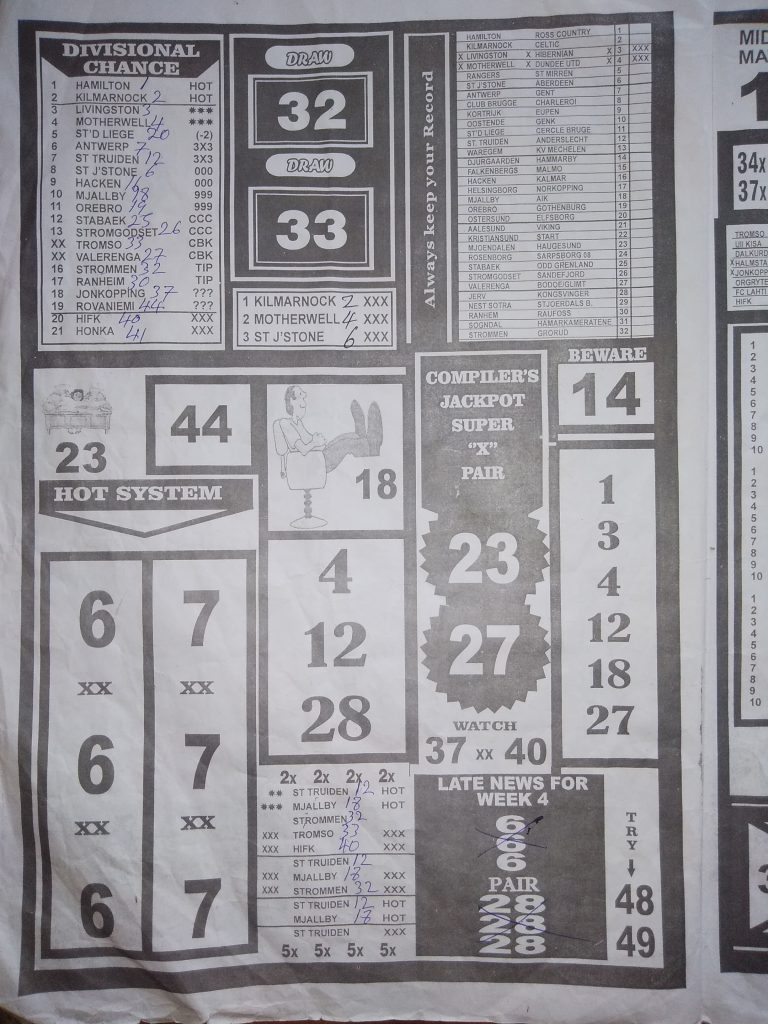 DIVISIONAL
CHANCE
1 HAMILTON 1 HOT
2 KILMARNOCK 2 HOT
3 LIVINGSTON 3 ***
4 MOTHERWELL 4 ***
5 ST'D LIEGE 20 (-2)
6 ANTWERP 7 3X3
7 ST TRUIDEN 12 3X3
8 ST J'STONE 6 000
9 HACKEN 000
10 MJALLBY 18 999
11 OREBRO 19 999
12 STABAEK 25 CCC
13 STROMGODSET 26 CCC
XX TROMSO 33 CBK
XX VALERENGA 27 CBK
16 STROMMEN 32 TIP
17 RANHEIM 30 TIP
18 JONKOPPING 37 ???
19 ROVANIEMI 44 ???
20 HIFK 40 XXX
21 HONKA 41 XXX
DRAW
32
DRAW
33
1 KILMARNOCK 2 XXX
2 MOTHERWELL 4 XXX
3 ST J'STONE 6 XXX
Always keep your Record
HAMILTON ROSS COUNTRY 1
KILMARNOCK CELTIC 2
X LIVINGSTON X HIBERNIAN X 3 XXX
X MOTHERWELL X DUNDEE UTD X 4 XXX
RANGERS ST MIRREN 5
ST J'STONE ABERDEEN 6
ANTWERP GENT 7
CLUB BRUGGE CHARLEROI 8
KORTRIJK EUPEN 9
OOSTENDE GENK 10
ST'D LIEGE CERCLE BRUGE 11
ST. TRUIDEN ANDERSLECHT 12
WAREGEM KV MECHELEN 13
DJURGAARDEN HAMMARBY 14
FALKENBERGS MALMO 15
HACKEN KALMAR 16
HELSINGBORG NORKOPPING 17
MJALLBY AIK 18
OREBRO GOTHENBURG 19
OSTERSUND ELFSBORG 20
AALESUND VIKING 21
KRISTIANSUND START 22
MJOENDALEN HAUGESUND 23
ROSENBORG SARPSBORG 08 24
STABAEK ODD GRENLAND 25
STROMGODSET SANDEFJORD 26
VALERENGA BODOE/GLIMT 27
JERV KONGSVINGER 28
NEST SOTRA STJOERDALS B. 29
RANHEM RAUFOSS 30
SOGNDAL HAMARKAMERATENE 31
STROMMEN GRORUD 32
23
44
18
HOT SYSTEM
6 7
XX XX
6 7
XX XX
6 7
4
12
28
2x 2x 2x 2x
** ST TRUIDEN 12 HOT
*** MJALLBY 18 HOT
STROMMEN 32
XXX TROMSO 33 XXX
XXX HIFK 40 XXX
ST TRUIDEN 12
XXX MJALLBY 18 XXX
XXX STROMMEN 32 XXX
ST TRUIDEN 12 HOT
MJALLBY 18 HOT
ST TRUIDEN XXX
5x 5x 5x 5x
COMPILER'S
JACKPOT
SUPER
"X"
PAIR
23
27
WATCH
37 XX 40
LATE NEWS FOR
WEEK 4
6
6
6
PAIR
28
28
28
BEWARE
14
1
3
4
12
18
27
TRY
48
49
MID
MA
1
34x
37x
TROMSO
UII KISA
DALKURD
X HALMSTA
X JONKOPP
ORGRYTE
FC LAHTI
HIFK
1
2
3
4
5
6
7
8
9
10
1
2
3
4
5
6
7
8
9
10
1
2
3
4
5
6
7
8
9
10